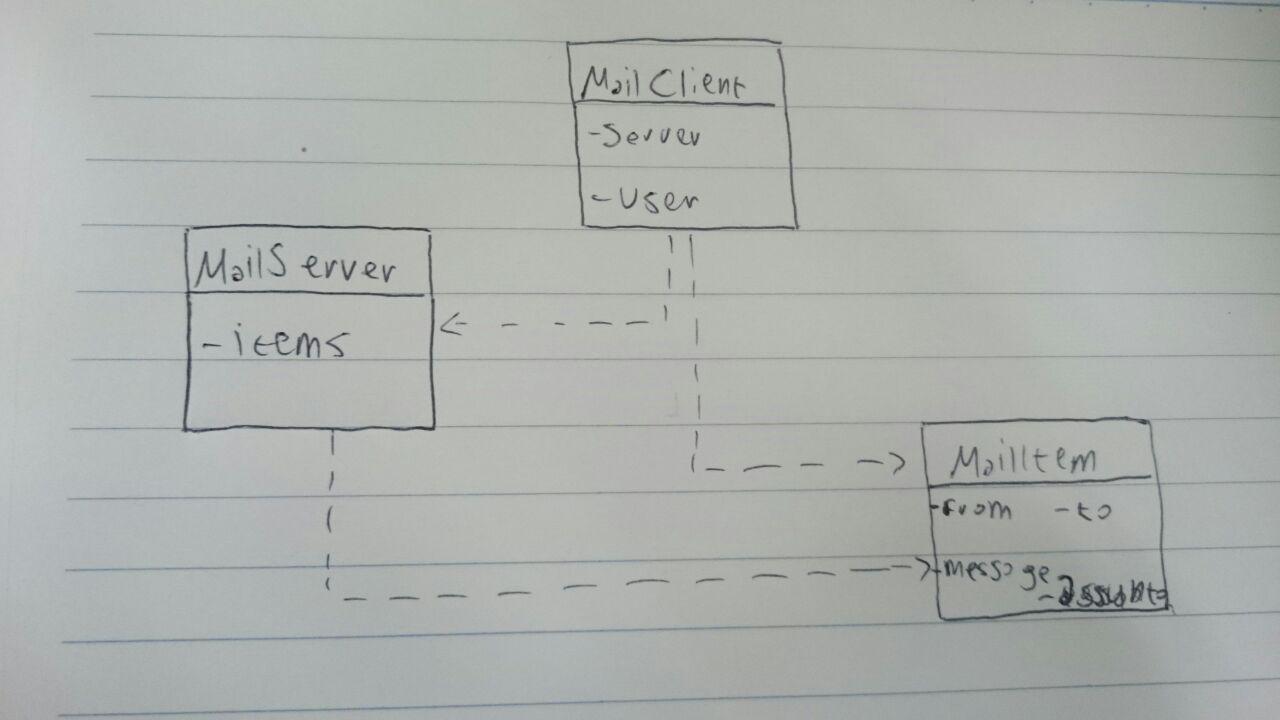 MailClient
-Server
-User
MailServer
-items
MailItem
-from -to
-message